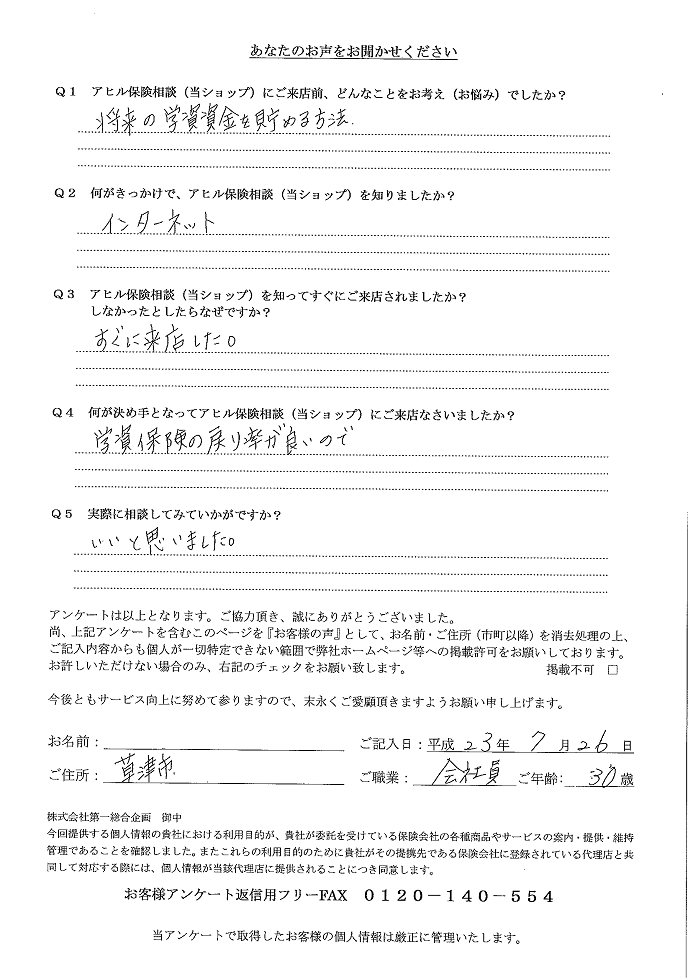 あなたのお声をお聞かせください
Q1 アヒル保険相談（当ショップ）にご来店前、どんなことをお考え（お悩み）でしたか？
将来の学資資金を貯める方法.
Q2 何がきっかけで、アヒル保険相談（当ショップ）を知りましたか？
インターネット
Q3 アヒル保険相談（当ショップ）を知ってすぐにご来店されましたか？
しなかったとしたらなぜですか？
すぐに来店した。
Q4 何が決め手となってアヒル保険相談（当ショップ）にご来店なさいましたか？
学資保険の戻り率が良いので
Q5 実際に相談してみていかがですか？
いいと思いました。
アンケートは以上となります。ご協力頂き、誠にありがとうございました。
尚、上記アンケートを含むこのページを『お客様の声』として、お名前・ご住所（市町以降）を消去処理の上、
ご記入内容からも個人が一切特定できない範囲で弊社ホームページ等への掲載許可をお願いしております。
お許しいただけない場合のみ、右記のチェックをお願い致します。 掲載不可 □
今後ともサービス向上に努めて参りますので、末永くご愛顧頂きますようお願い申し上げます。
お名前： ご記入日：平成 23年 7月 26日
ご住所： 草津市 ご職業： 会社員 ご年齢: 30歳
株式会社第一総合企画 御中
今回提供する個人情報の貴社における利用目的が、貴社が委託を受けている保険会社の各種商品やサービスの案内・提供・維持
管理であることを確認しました。またこれらの利用目的のために貴社がその提携先である保険会社に登録されている代理店と共
同して対応する際には、個人情報が当該代理店に提供されることにつき同意します。
お客様アンケート返信用フリーFAX 0120－140－554
当アンケートで取得したお客様の個人情報は厳正に管理いたします。